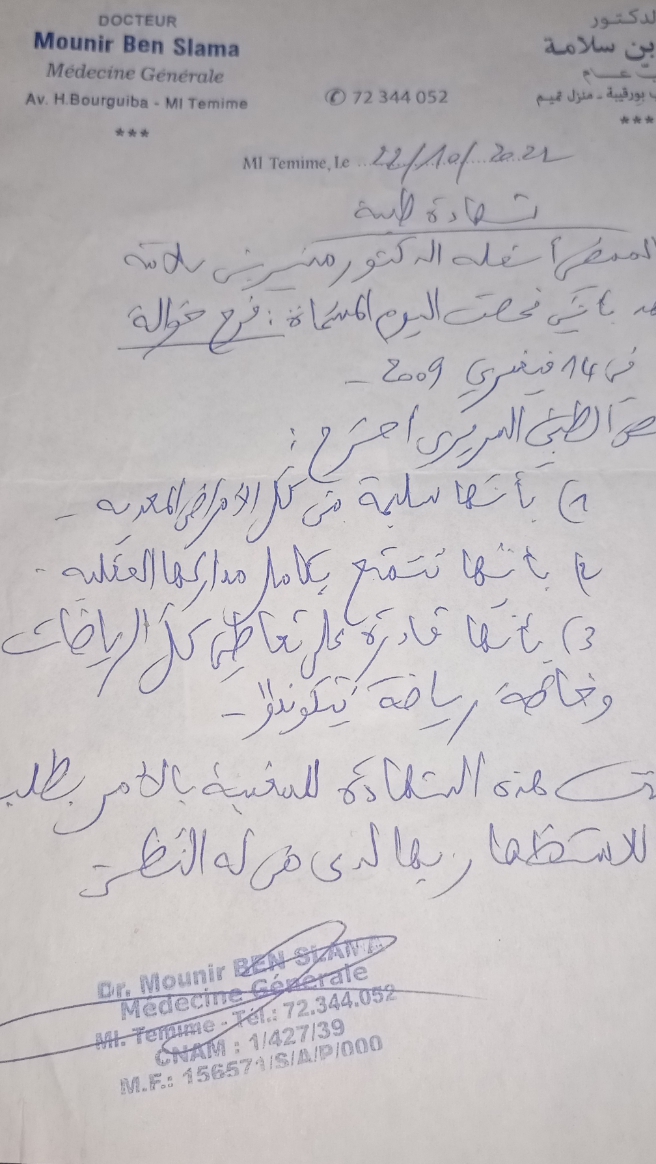 DOCTEUR
Mounir Ben Slama
Médecine Générale
Av. H.Bourguiba - Ml Temime
***
✆ 72 344 052
لدكتور
بن سلامة
ب عــام
ب بورقيبة ـ منزل تميم
***
Ml Temime, Le 22/10/2021
شهادة طبية
الممضي أسفله الدكتور منير بن سلامة
بأنني فحصت اليوم المسماة : فرح خوالة
في 14 فيفري 2009 -
الطبي السريري أصرح :
1) بأنها سليمة من كل الأمراض المعدية -
2) بأنها تتمتع بكامل مداركها العقلية -
3) بأنها قادرة على تعاطي كل الرياضات
وخاصة رياضة تيكوندو -
هذه الشهادة للمعنية بالأمر بطلب
للاستظهار بها لدى من له النظر
Dr. Mounir BEN SLAMA
Médecine Générale
Ml. Temime - Tél.: 72.344.052
CNAM : 1/427/39
M.F.: 156571/S/A/P/000